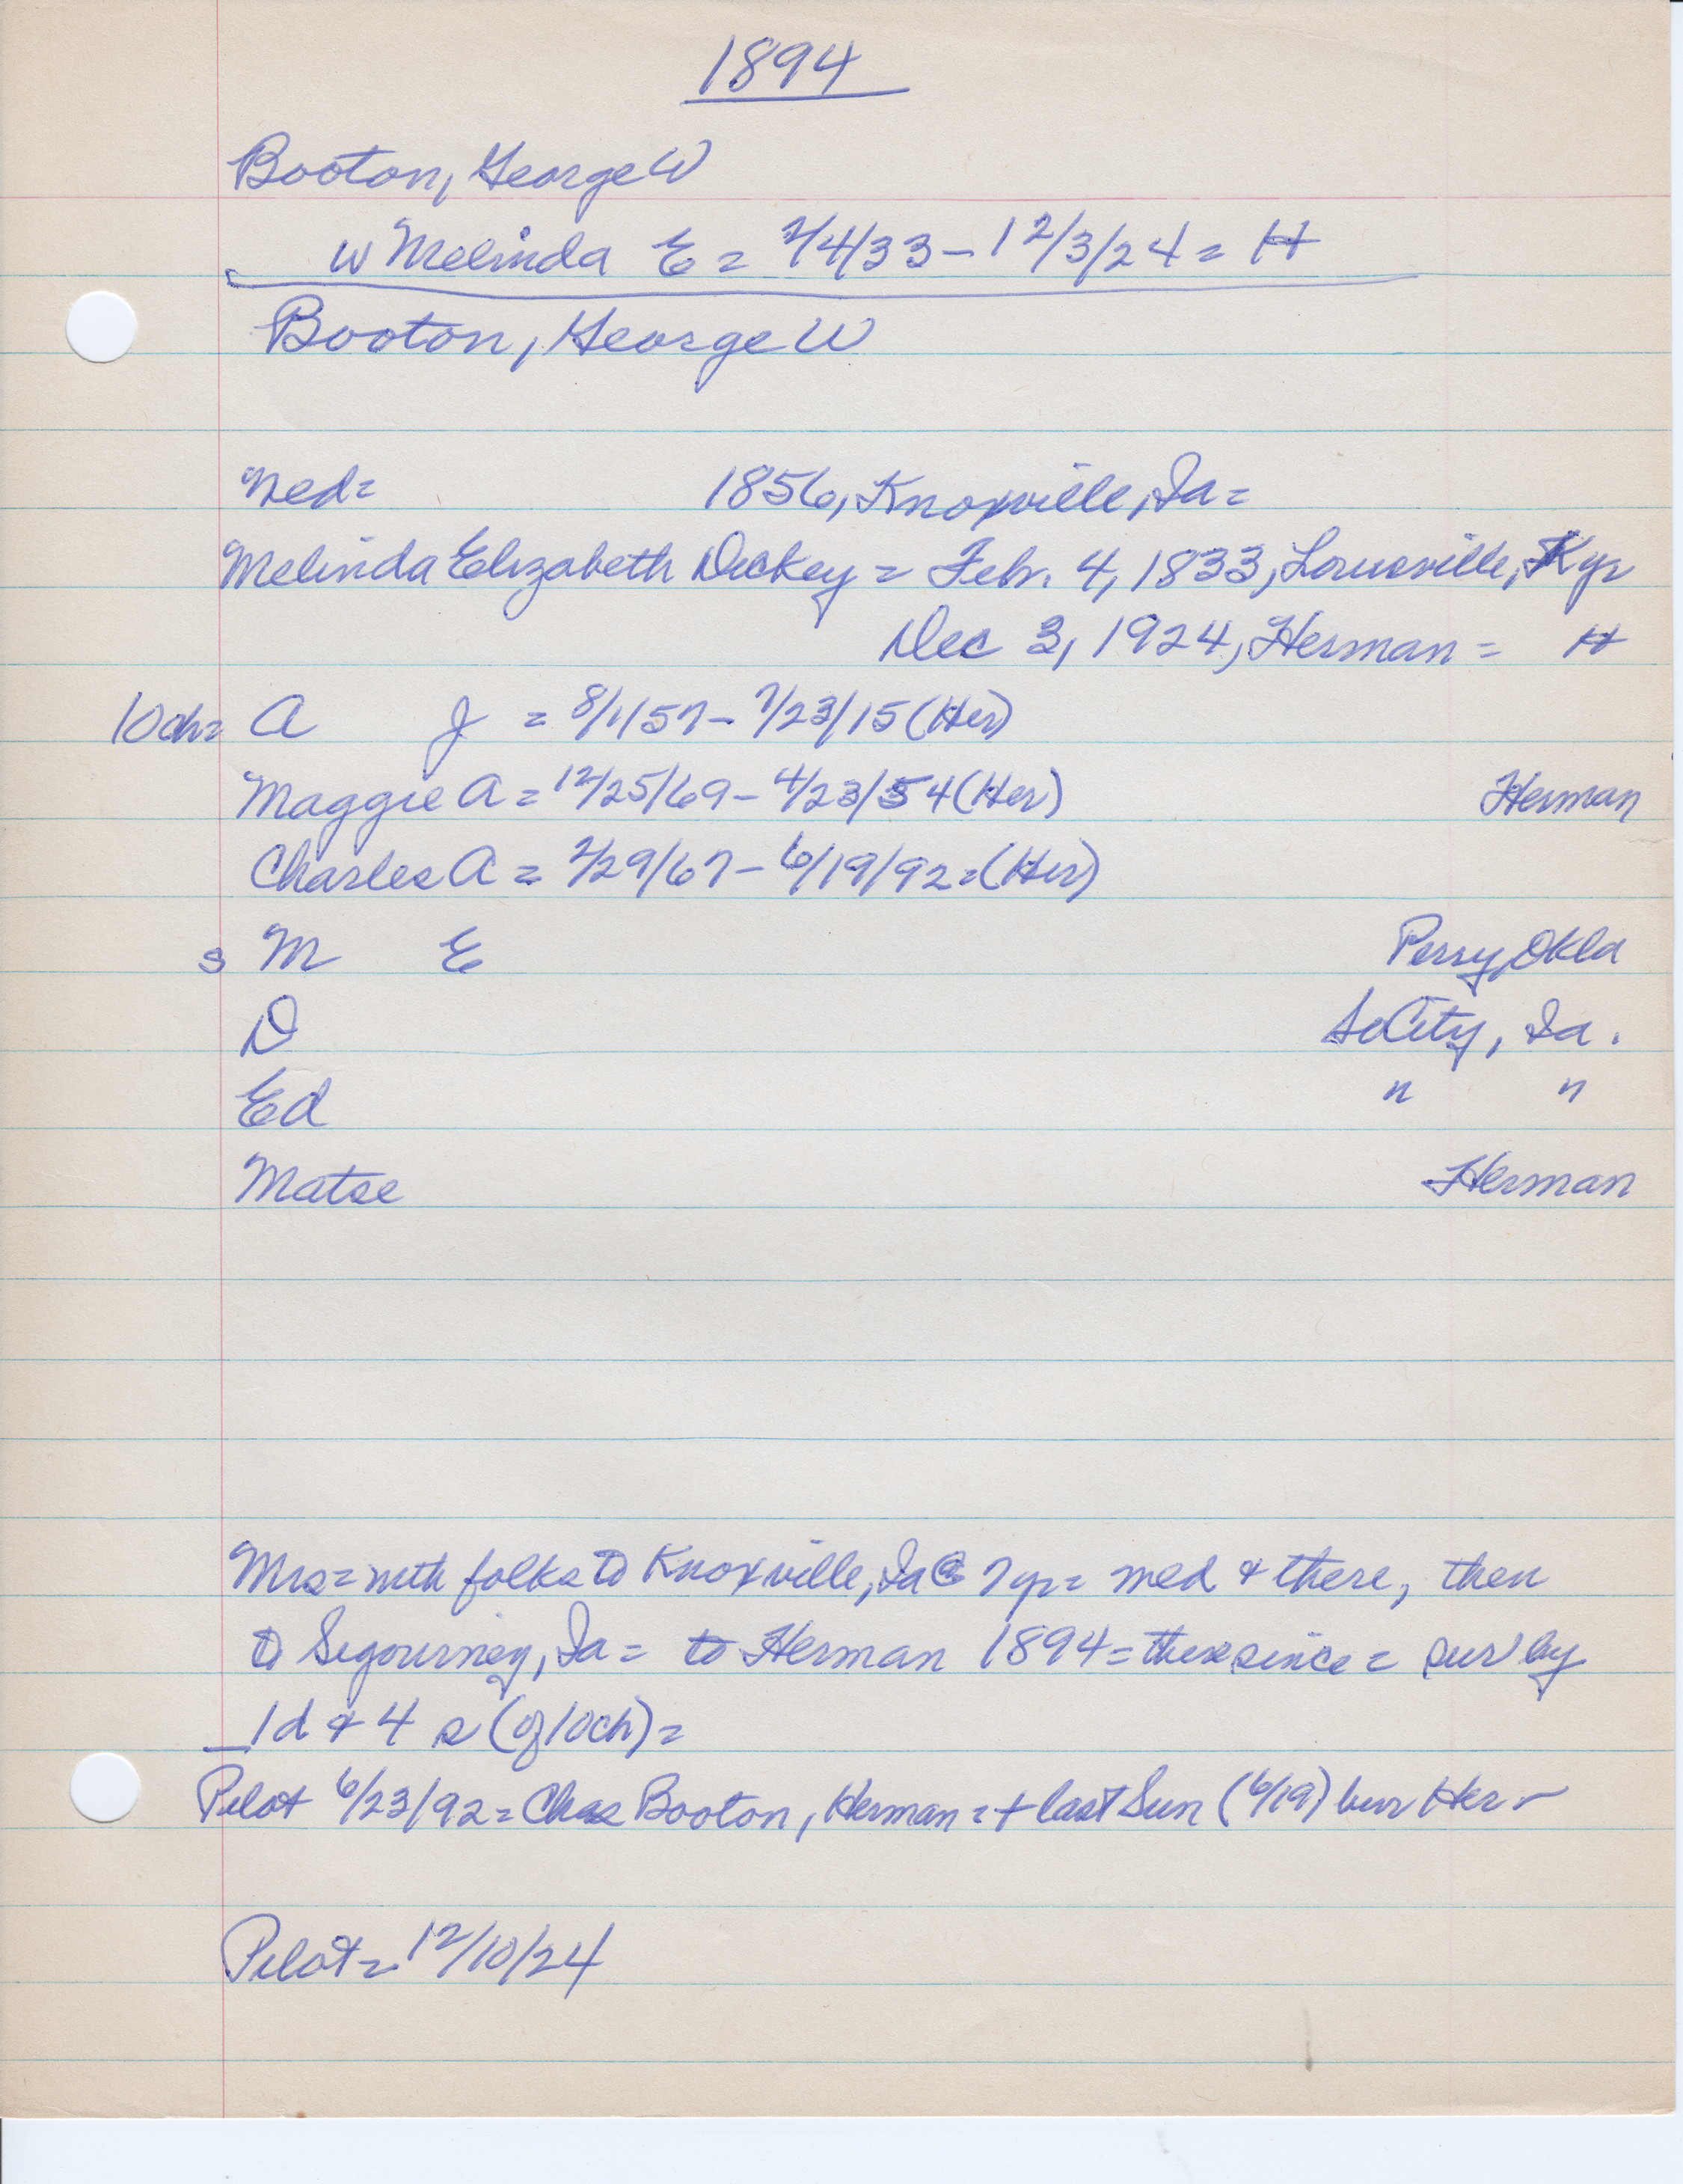 1894
Booton, George W
w Melinda E = 2/4/33 - 12/3/24 = H
Booton, George W
Med = 1856, Knoxville, Ia =
Melinda Elizabeth Dickey = Feb. 4, 1833, Louisville, Ky =
Dec 3, 1924, Herman = H
10 ch = A J = 8/1/57 - 7/23/15 (Her)
Maggie A = 12/25/69 - 4/23/54 (Her) Herman
Charles A = 2/29/67 - 6/19/92 = (Her)
s M E Perry, Okla
D So City, Ia.
Ed " "
Matse Herman
Mrs = with folks to Knoxville, Ia @ 7 yr = med & there, then
to Sigourney, Ia = to Herman 1894 = there since = sur by
1 d & 4 s (of 10 ch) =
Pilot 6/23/92 = Chas Booton, Herman = + last Sun (6/19) bur Her -
Pilot = 12/10/24